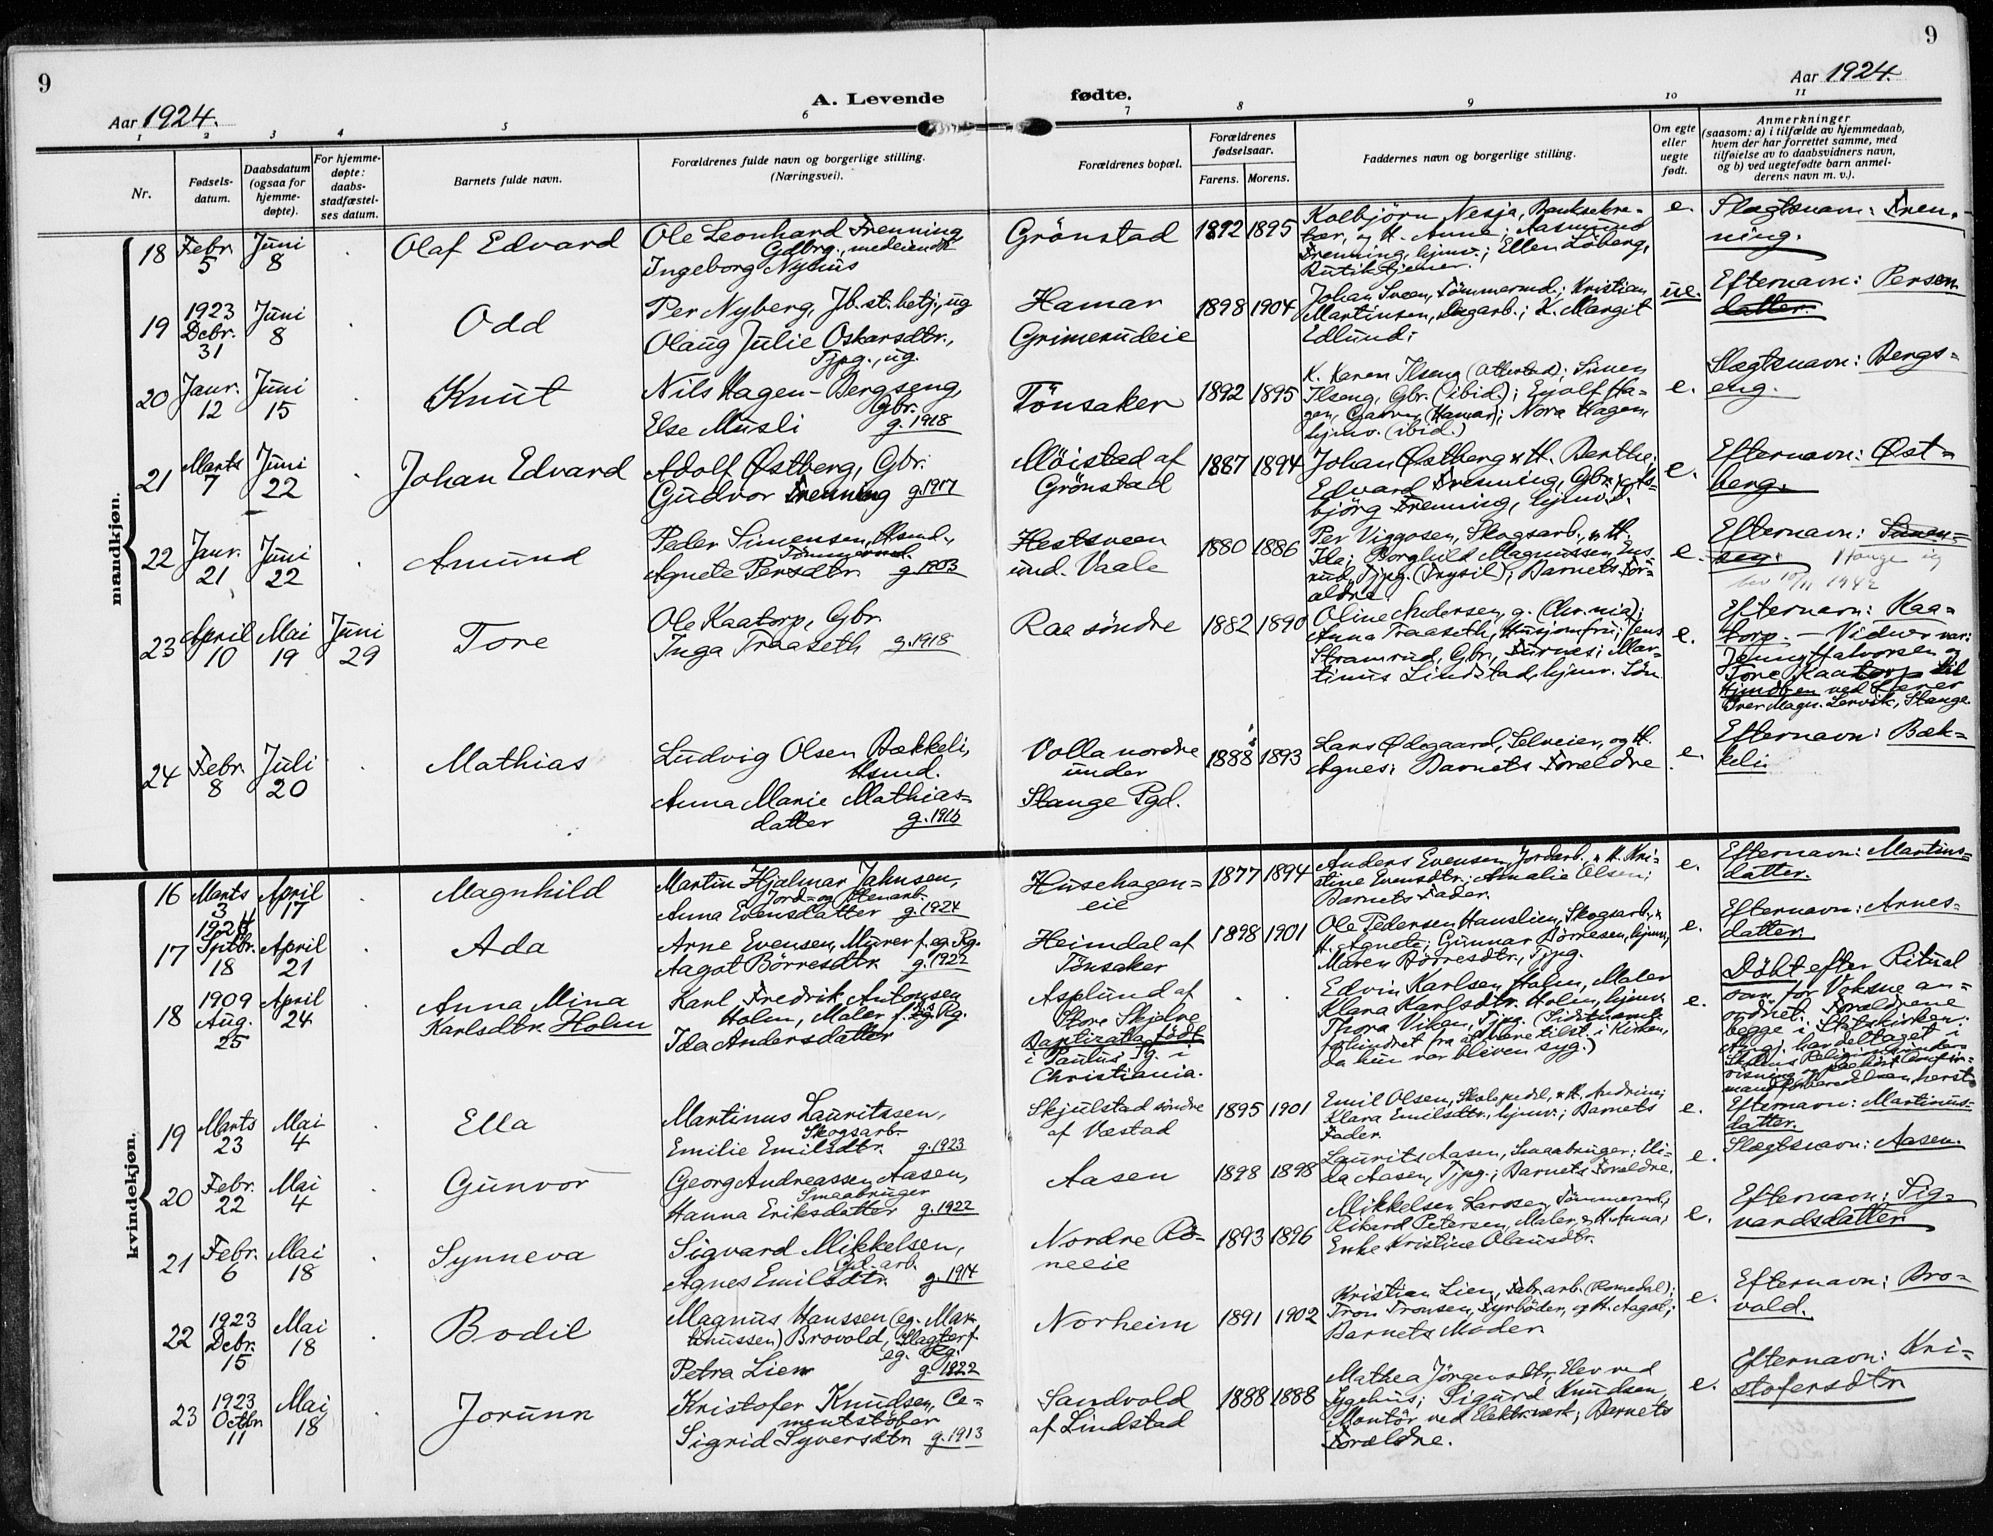 9
9
Aar 1924.
A. Levende fødte.
Aar 1924.
1 2 3 4 5 6 7 8 9 10 11
Nr.
Fødsels-
datum.
Daabsdatum
(ogsaa for
hjemme-
døpte).
For hjemme-
døpte:
daabs-
stadfæstel-
ses datum.
Barnets fulde navn.
Forældrenes fulde navn og borgerlige stilling.
(Næringsvei).
Forældrenes bopæl.
Forældrenes
fødselsaar.
Farens. Morens.
Faddernes navn og borgerlige stilling.
Om egte
eller
uegte
født.
Anmerkninger
(saasom: a) i tilfælde av hjemmedaab,
hvem der har forrettet samme, med
tilføielse av to daabsvidners navn,
og b) ved uegtefødte barn anmel-
derens navn m. v.).
mandkjøn.
18
Febr.
5
Juni
8
Olaf Edvard
Ole Leonhard Frenning
Ingeborg Nyhus
Grönstad
1892 1895
Kolbjörn Nesja, Banksekre-
tær, og H. Anna; Rasmund
Frenning, hjmv.; Ellen Löberg,
Butiktjener.
e.
Slagtsnavn: Fren-
ning.
19
1923
Decbr.
31
Juni
8
Odd
Per Nyberg, Jb.st.betj., ug
Olaug Julie Oskarsdtr.,
Tjpg., ug.
Hamar
Grimerudeie
1898 1904
Johan Sveen, Tömmermd.; Kristian
Martinsen, Dagarb.; K. Margit
Edlund;
ue.
Efternavn: Persen
datter.
20
Janr.
12
Juni
15
Knut
Nils Hagen-Bergseng,
Gbr.
Else Musli g. 1918
Tönsaker
1892 1895
K. Karen Ilseng (Ottestad); Simen
Ilseng, Gbr. (ibid.); Ejolf Ha-
gen, (Hamar); Nora Hagen,
hjmv. (ibid.)
e.
Slægtsnavn: Bergs-
eng.
21
Marts
7
Juni
22
Johan Edvard
Adolf Østberg, Gbr.
Gudvor Frenning g.1917
Möistad af
Grönstad
1887 1894
Johan Østberg & H. Berthe;
Edvard Frenning, Gbr.; As-
björg Frenning, hjmv.
e.
Efternavn: Øst-
berg.
22
Janr.
21
Juni
22
Amund
Peder Simensen, Hsmd.,
Tömmermd.
Agnete Persdtr. g.1903
Hestsveen
und. Vaale
1880 1886
Per Viggosen, Skogsarb., & H.
Ida; Borghild Magnussen, Ens-
rud, Tjpg. (Trysil); Barnets For-
ældre.
e.
Efternavn: Simen-
sen.
1942
23
April
10
Mai
19
Juni
29
Tore
Ole Kaatorp, Gbr.
Inga Traaseth g.1918
Raa söndre
1882 1890
Oline Andersen, g. (Chr.nia);
Anna Traaseth, Husjomfru; Jens
Stramrud, Gbr., Furnes; Mar-
tinus Lindstad, hjmv. Sön
e.
Efternavn: Kaa-
torp. - Vidner var:
Jenny Halvorsen og
Tone Kaatorp
Iver Magn. Lervik, Stange.
24
Febr.
8
Juli
20
Mathias
Ludvig Olsen Bækkeli,
Hsmd.
Anna Marie Mathias-
datter g.1916
Volla nordre
under
Stange Pgd.
1888 1893
Lars Ødegaard, Selveier, og H.
Agnes; Barnets Forældre
e.
Efternavn: Bæk-
keli.
kvindekjøn.
16
Marts
3
April
17
Magnhild
Martin Hjalmar Jahnsen,
Jord- og Stenarb.
Anna Evensdatter g.1924
Husehagen-
eie
1877 1894
Anders Evensen, Jordarb., & H. Kri-
stine Evensdtr.; Amalie Olsen;
Barnets Fader.
e.
Efternavn: Martins-
datter.
17
18
April
21
Ada
Arne Evensen, Murer f. eg. Rg.
Aagot Börresdtr. g.1922
Heimdal af
Tönsaker
1898 1901
Ole Pedersen Hauslien, Skogsarb., &
H. Agnete; Gunnar Börresen, hjmv.;
Maren Börresdtr., Tjpg.
e.
Efternavn: Arnes-
datter.
18
1909
Aug.
25
April
24
Anna Mina
Karlsdtr. Holm
Karl Fredrik Antonsen
Holm, Maler f. eg. Rg.
Ida Andersdatter
Asplund af
Store Skjelve
født
i Paulus Pg. i
Christiania.
Edvin Karlsen Holm, Maler
Klara Karlsdtr. Holm, hjmv.
Thora Viken, Tjpg. (Sidstnævnte
forhindret fra at være tilst. i Kirken,
da hun var bleven syg.)
e.
Döbt efter Ritual
som for Voksne an-
ordnet. Forældrene
begge i Statskirken.
19
Marts
23
Mai
4
Ella
Martinus Lauritssen,
Skogsarb.
Emilie Emilsdtr. g.1923
Skjulstad söndre
af Væstad
1895 1901
Emil Olsen, Skolepedel, & H. Andrine;
Klara Emilsdtr., hjmv.; Barnets
Fader.
e.
Efternavn: Martinus-
datter.
20
Febr.
22
Mai
4
Gunvor
Georg Andreassen Aasen,
Smaabruger
Hanna Eriksdatter g.1922
Aasen
1898 1898
Laurits Aasen, Smaabruger; Eli-
da Aasen, Tjpg.; Barnets Forældre.
e.
Slægtsnavn: Aasen.
21
Febr.
6
Mai
18
Synneva
Sigvard Mikkelsen,
Agnes Emilsdtr. g.1914
Nordre Rö-
neeie
1893 1896
Mikkelsen Larssen, Tömmermd.;
Rikard Petersen, Maler, & H. Anna;
Enke Kristine Olausdtr.
e.
Efternavn: Sig-
vardsdatter.
22
1923
Decbr.
15
Mai
18
Bodil
Magnus Hanssen (eg. Mar-
tinussen) Brovold, Slagter f.
eg. Rg.
Petra Lien g.1922
Norheim
1891 1902
Kristian Lien, Fabr.arb. (Romedal);
Tron Tronsen, Fyrböder, og H. Aagot;
Barnets Moder.
e.
Efternavn: Bro-
vold.
23
1923
Octbr.
11
Mai
18
Jorunn
Kristofer Knudsen, Ce-
mentstöber
Sigrid Syversdtr. g.1913
Sandvold
af Lindstad
1888 1888
Mathea Jörgensdtr., Elev ved
Sygehus; Sigurd Knudsen,
Montör ved Elektr.verk; Barnets
Forældre.
e.
Efternavn: Kri-
stofersdtr.